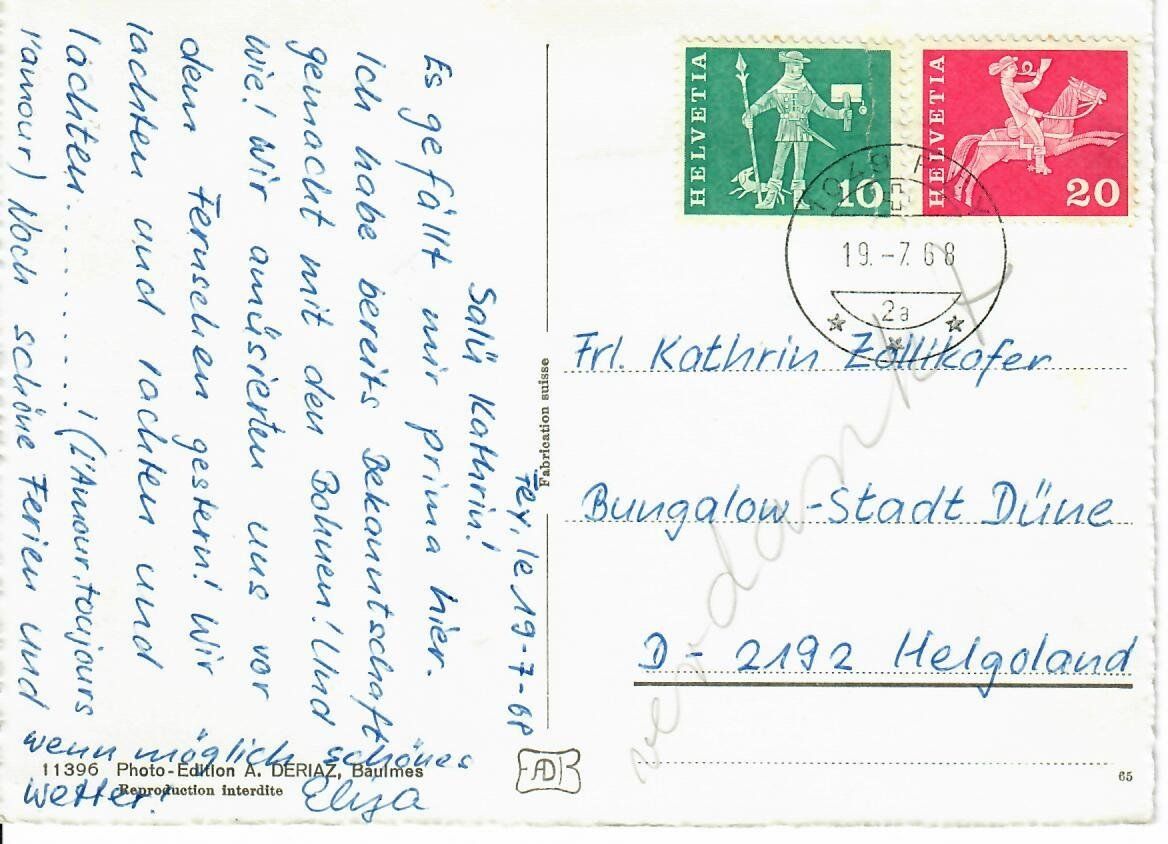 Fey, le 19-7-68
Salü Kathrin!
Es gefällt mir prima hier.
Ich habe bereits Bekanntschaft
gemacht mit den Bohnen! Und
wie! Wir amüsierten uns vor
dem Fernsehen gestern! Wir
lachten und lachten und
lachten..........! (L'Amour, toujours
l'amour) Noch schöne Ferien und
wenn möglich schönes
Wetter! Eliza
11396 Photo-Edition A. DERIAZ, Baulmes
Reproduction interdite
Fabrication suisse
AD
HELVETIA
10
HELVETIA
20
1049 FEY
19.-7.68
2a
Frl. Kathrin Zollikofer
Bungalow-Stadt Düne
D - 2192 Helgoland
verdankt
65